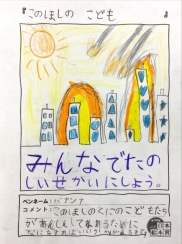 『このほしの こども』
みんなでたの
しいせかいにしよう。
ペンネーム：バナナ
コメント：このほしのくにのこどもたち
があんしんして